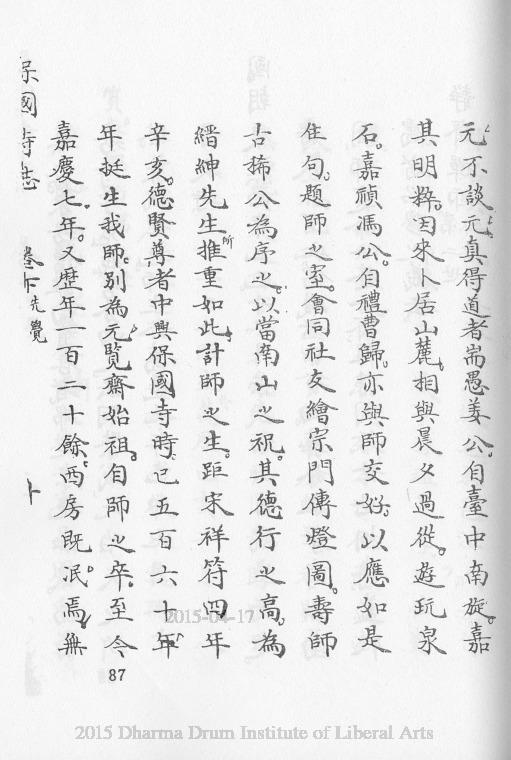 元不談元。真得道者耑愚姜公。自臺中南旋。嘉
其明粹。因來卜居山麓。相與晨夕過從。遊玩泉
石。嘉禎馮公。自禮曹歸。亦與師交好。以應如是
住句。題師之室。會同社友繪宗門傳燈圖。壽師
古稀公為序之。以當南山之祝。其德行之高。為
縉紳先生所推重如此。計師之生。距宋祥符四年
辛亥。德賢尊者中興保國寺時。已五百六十年
年挺生我師。別為元覽齋始祖。自師之卒。至今
嘉慶七年。又歷年一百二十餘。西房既泯。焉無
保國寺志 卷下 先覺 卜
87
2015-04-17
2015 Dharma Drum Institute of Liberal Arts